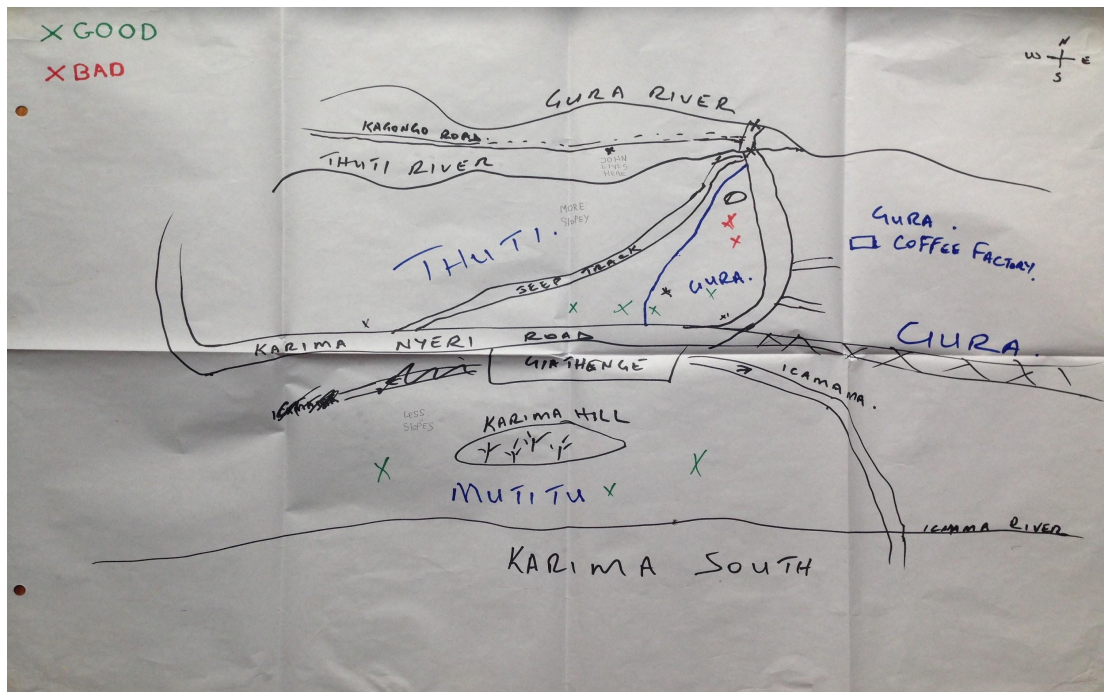 X GOOD
X BAD
N
W E
S
GURA RIVER
KAGONGO ROAD
THUTI RIVER
JOHN
LIVES
HERE
MORE
SLOPEY
THUTI.
JEEP TRACK
GURA.
GURA.
COFFEE FACTORY.
KARIMA NYERI ROAD
GURA.
GIATHENGE
ICAMAMA.
LESS
SLOPES
KARIMA HILL
MUTITU
ICAMAMA RIVER
KARIMA SOUTH